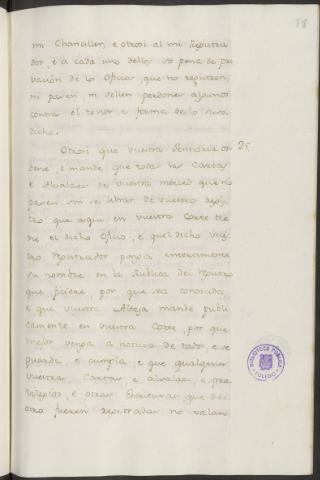 18
mi Chanciller, e otrosi al mi Registra
dor, e a cada uno dellos so pena de pri
vación de los Oficios, que no registren,
ni pasen, ni sellen perdones algunos
contra el tenor e forma de lo suso
dicho.
Otrosi que vuestra Sennoria or 25.
dene, e mande que todas las Cartas
e Alvalaes de vuestra merced que no
pasen sin se librar de vuestro regis
tro que aqui en vuestra Corte tie
ne el dicho Oficio, e quel dicho vues
tro registrador ponga enteramente
su nombre en la publica del registro
que ficiere, por que sea conocida,
e que vuestra Alteza mande publi
camente en vuestra Corte, por que
mejor venga a noticia de todos e se
guarde, e cumpla, e que qualesquier
vuestras Cartas, e alvalaes, e pre
vilegios, e otras Escrituras, que de
otro fueren registradas no valan
BIBLIOTECA PÚBLICA
TOLEDO